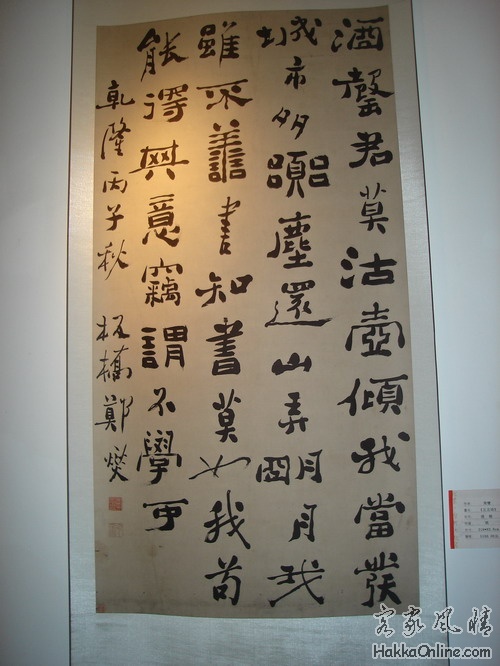 酒罄君莫沽壺傾我當發
城市多囂塵還山弄朙月我
雖不善書知書莫如我苟
能得其意竊謂不學可
乾隆丙子秋 板橋鄭燮
客家風情
HakkaOnline.com